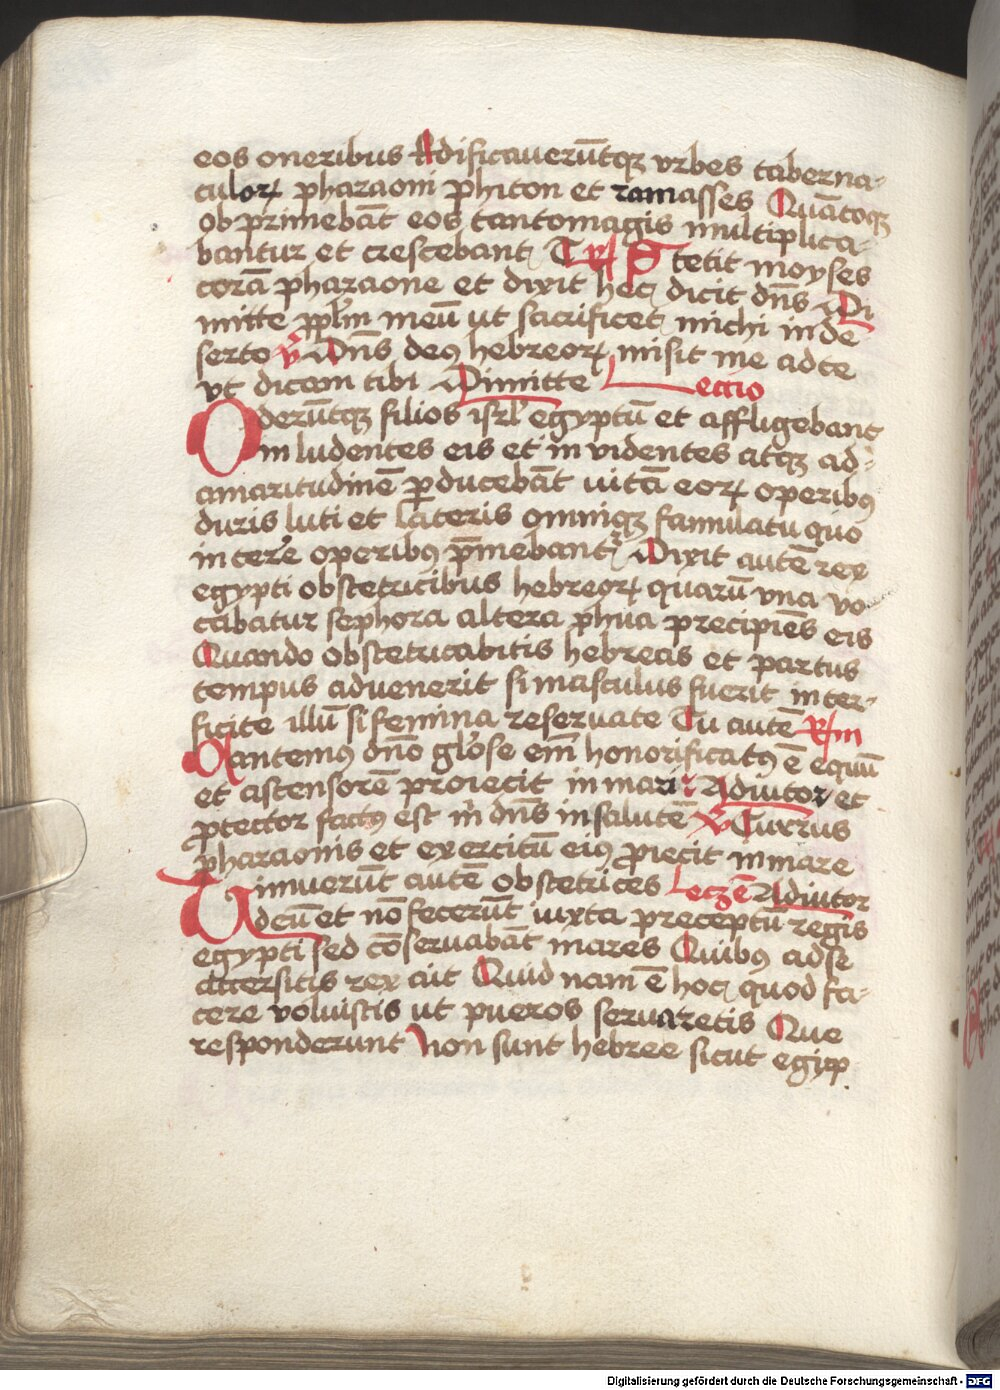 eos oneribus Adificauerūtqꝫ vrbes taberna-
culoꝝ pharaoni phiton et ramasses Quātoqꝫ
obprimebāt eos tantomagis multiplica-
bantur et crescebant T R Stetit moyses
corā pharaone et dixit hec dicit dn̄s Di
mitte pplm̄ meū ut sacrificet michi inde
serto V Dn̄s deꝰ hebreoꝝ misit me adte
vt dicam tibi Dimitte Leccio
Oderūtqꝫ filios isrl̄ egyptū et affligebant
inludentes eis et invidentes atqꝫ ad-
amaritudinē ꝑducebāt uitā eoꝝ operibꝰ
duris luti et lateris omniqꝫ famulatu quo
interre operibꝰ p̄mebantr Dixit autē rex
egypti obstetricibus hebreoꝝ quarū vna vo-
cabatur sephora altera phua precipiēs eis
Quando obstetricabitis hebreas et partus
tempus aduenerit si masculus fuerit inter-
ficite illū si femina reseruate Tu autē Rm
Cantemꝰ dn̄o glo̅se em̄ honorificatꝰ ē equū
et ascensorē proiecit in mari Adiutor et
ꝓtector factꝰ est m̄ dn̄s insalutē V Currus
pharaonis et exercitū eiꝰ ꝓiecit inmare
Timuerūt autē obstetrices Leczē Adiutor
deū et nō fecerūt iuxta preceptū regis
egypti sed cōseruabāt mares Quibꝰ adse
accersitis rex ait Quid nam ē hoc quod fa-
cere voluistis ut pueros seruaretis Que
responderunt Non sunt hebree sicut egip
Digitalisierung gefördert durch die Deutsche Forschungsgemeinschaft - DFG